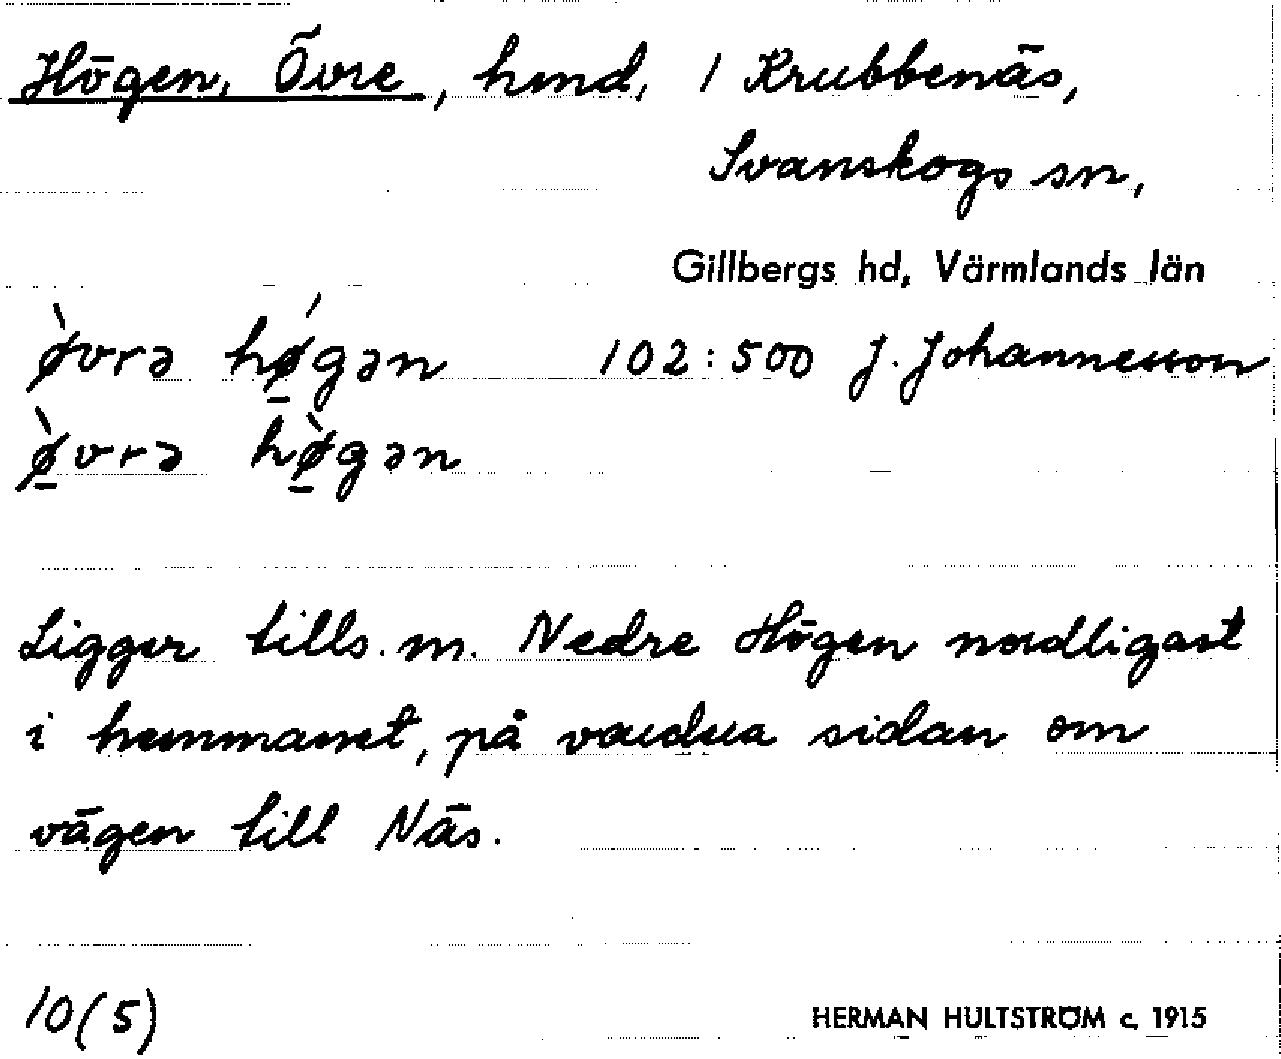 Högen, Övre, hmd, 1 Krubbenäs,
Svanskogs sn,
Gillbergs hd, Värmlands län
ø̀vrə hǿ̲gən 102:500 J. Johannesson
ø̲̀vrə hø̲̀gən
Ligger tills. m. Nedre Högen nordligast
i hemmanet, på vardua sidan om
vägen till Näs.
10(5)
HERMAN HULTSTRÖM c. 1915